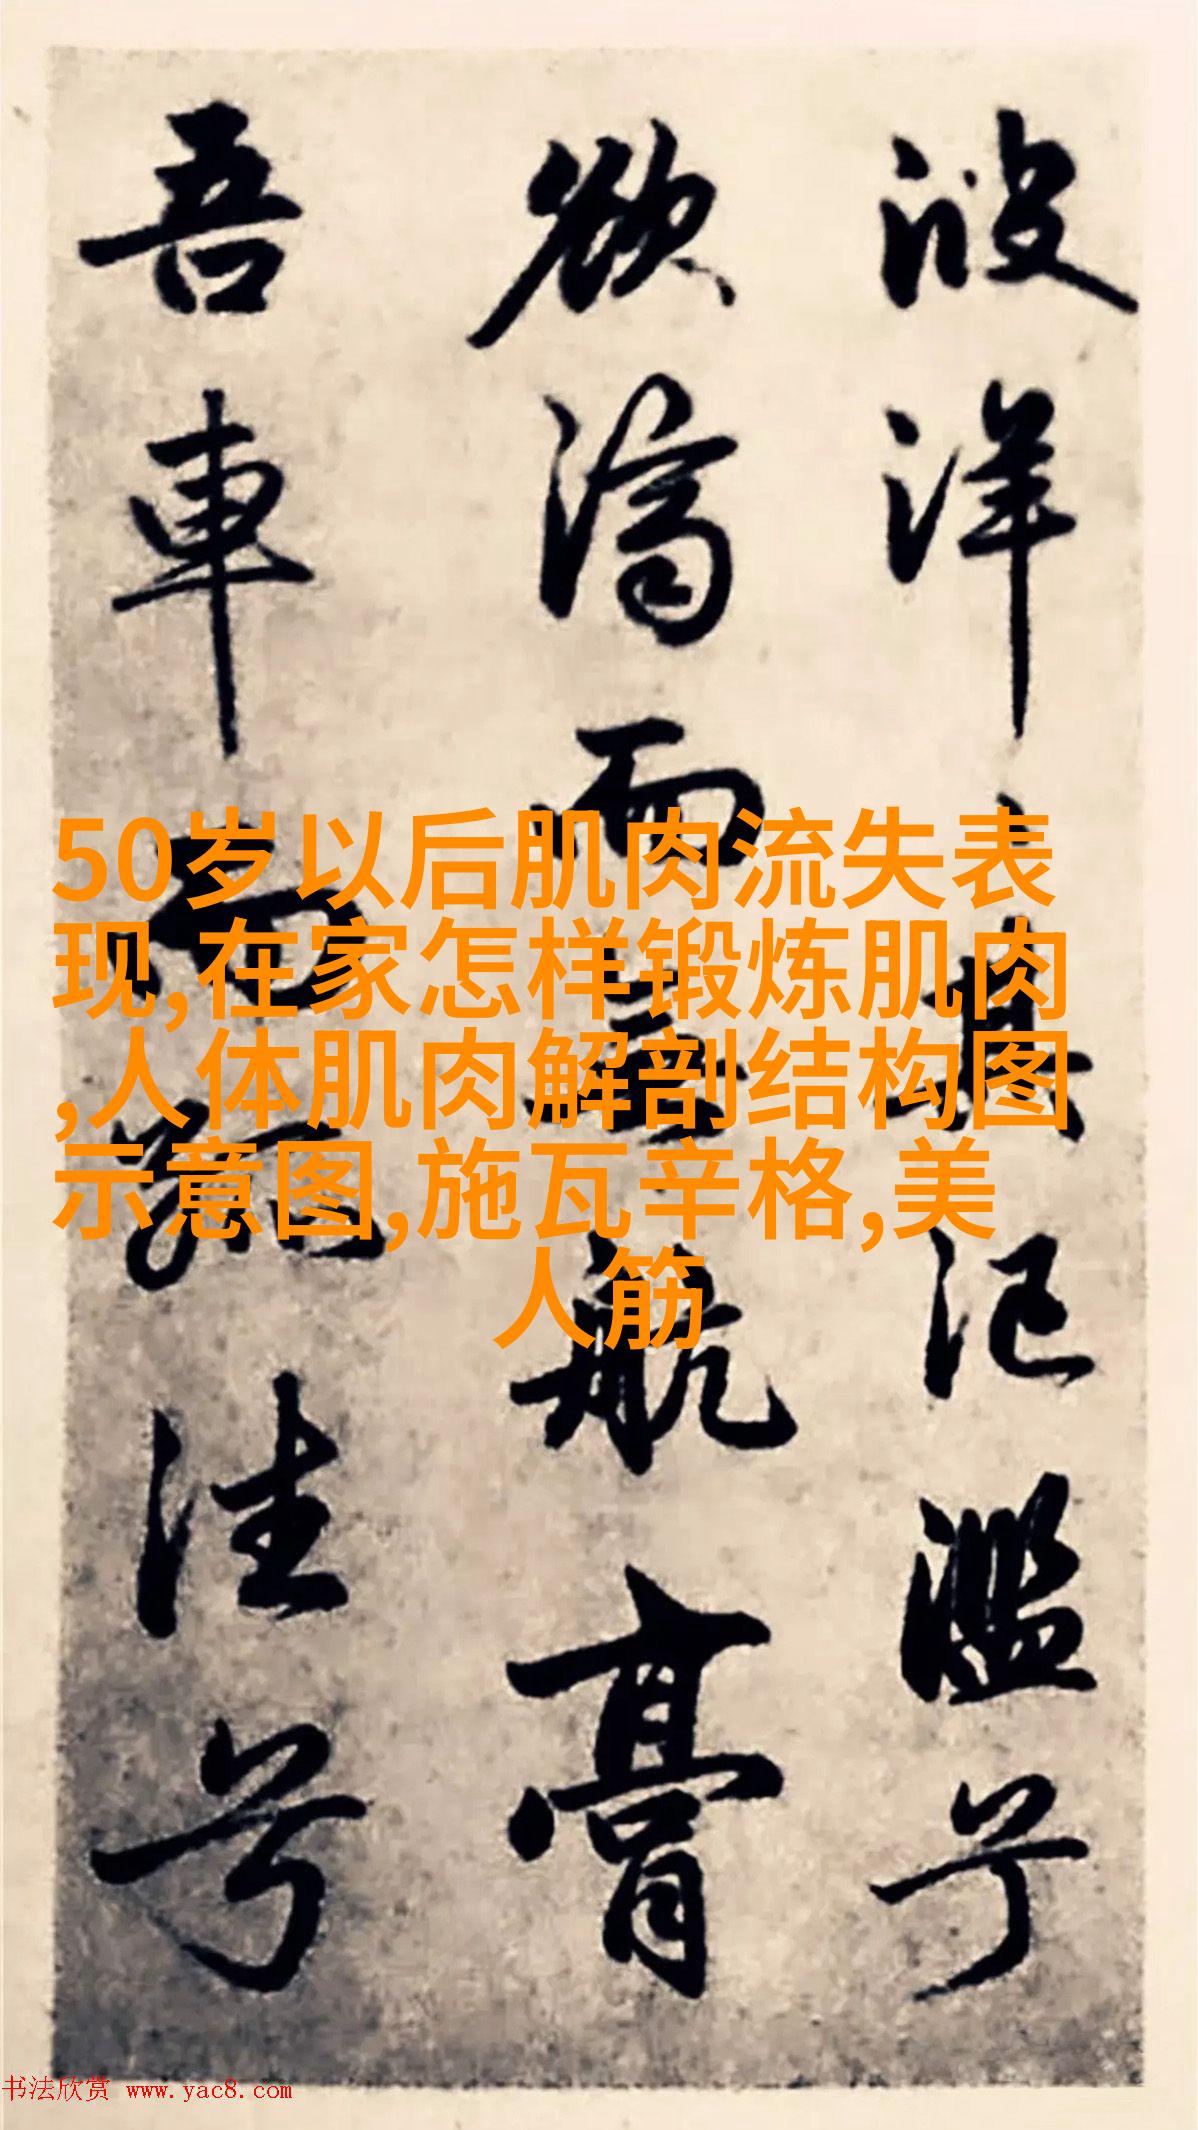 洋其氾濫兮
欲濟而無航膏
吾車而往兮
50岁以后肌肉流失表
现,在家怎样锻炼肌肉
,人体肌肉解剖结构图
示意图,施瓦辛格,美
人筋
书法欣赏 www.yac8.com